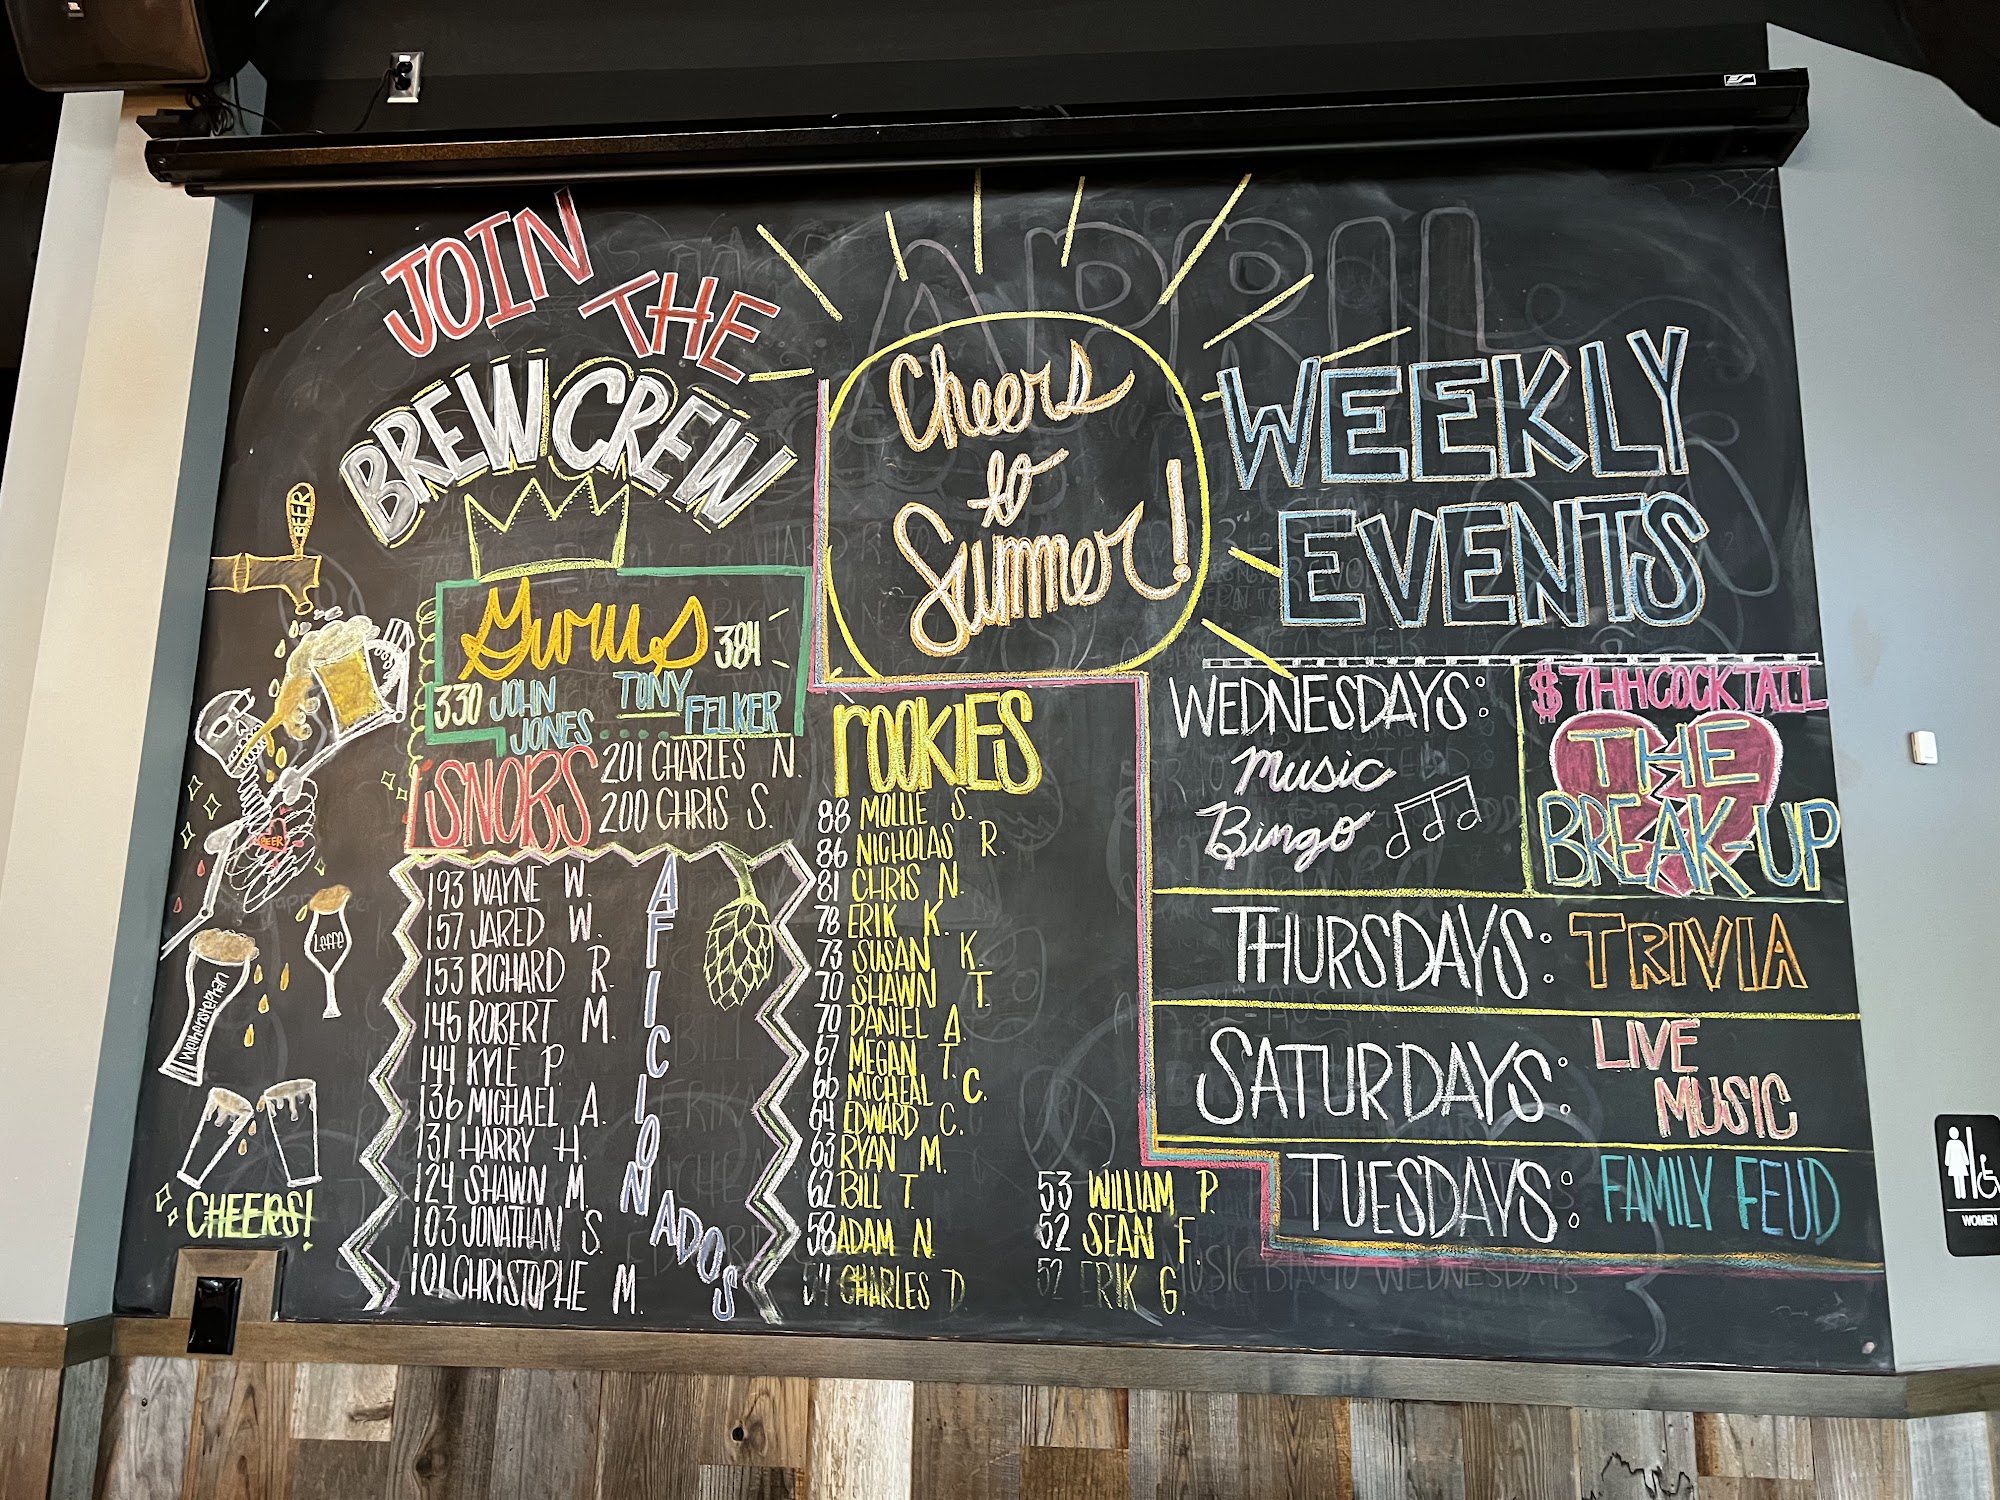 JOIN
THE
BREW CREW
BEER
BEER
Leffe
Weihenstephan
CHEERS!
Gurus
384
TONY FELKER
330 JOHN JONES
SNOBS
201 CHARLES N.
200 CHRIS S.
AFICIONADOS
193 WAYNE W.
157 JARED W.
153 RICHARD R.
145 ROBERT M.
144 KYLE P.
136 MICHAEL A.
131 HARRY H.
124 SHAWN M.
103 JONATHAN S.
101 CHRISTOPHE M.
Cheers
to
Summer!
ROOKIES
88 MOLLIE S.
86 NICHOLAS R.
81 CHRIS N.
78 ERIK K.
73 SUSAN K.
70 SHAWN T.
70 DANIEL A.
67 MEGAN T.
66 MICHEAL C.
64 EDWARD C.
63 RYAN M.
62 BILL T.
58 ADAM N.
54 CHARLES D.
53 WILLIAM P.
52 SEAN F.
52 ERIK G.
APRIL
WEEKLY
EVENTS
WEDNESDAYS:
Music
Bingo
$7 HH COCKTAIL
THE
BREAK-UP
THURSDAYS: TRIVIA
SATURDAYS: LIVE MUSIC
TUESDAYS: FAMILY FEUD
MUSIC BINGO WEDNESDAYS
WOMEN